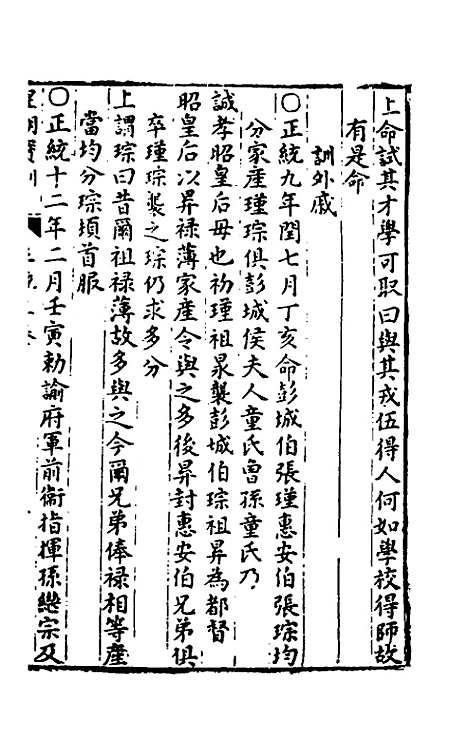 上命試其才學可取曰與其戎伍得人何如學校得師故
有是命
訓外戚
〇正統九年閏七月丁亥命彭城伯張瑾惠安伯張琮均
分家產瑾琮俱彭城侯夫人童氏曾孫童氏乃
誠孝昭皇后母也初瑾祖泉襲彭城伯琮祖昇為都督
昭皇后以昇祿薄家產令與之多後昇封惠安伯兄弟俱
卒瑾琮襲之琮仍求多分
上謂琮曰昔爾祖祿薄故多與之今爾兄弟俸祿相等產
當均分琮頊首服
〇正統十二年二月壬寅勅諭府軍前衛指揮孫繼宗及